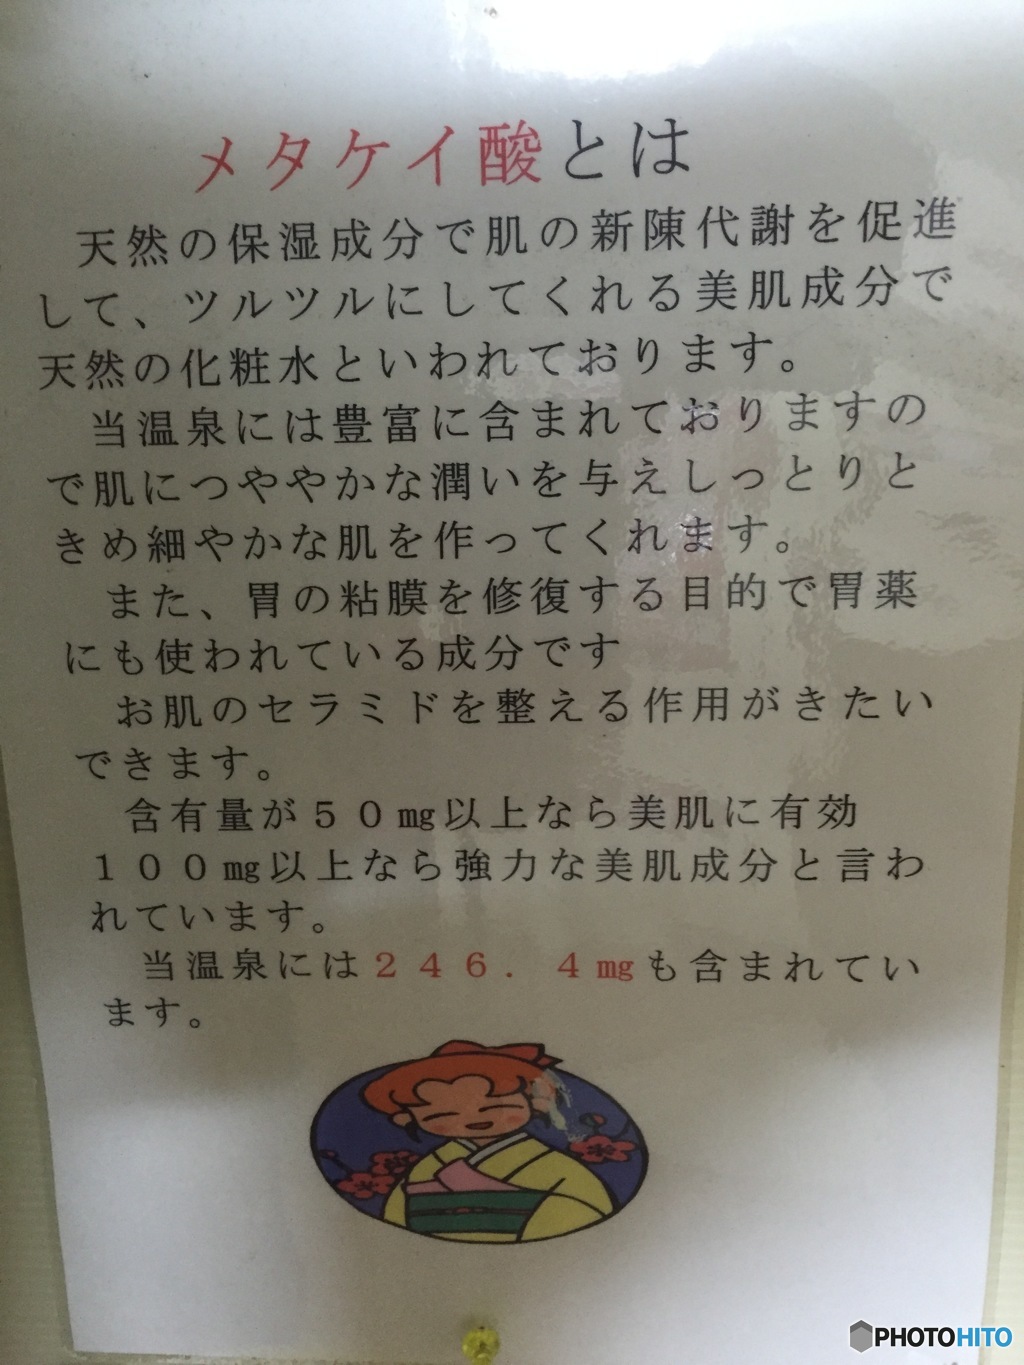 メタケイ酸とは
天然の保湿成分で肌の新陳代謝を促進
して、ツルツルにしてくれる美肌成分で
天然の化粧水といわれております。
当温泉には豊富に含まれておりますの
で肌につややかな潤いを与えしっとりと
きめ細やかな肌を作ってくれます。
また、胃の粘膜を修復する目的で胃薬
にも使われている成分です
お肌のセラミドを整える作用がきたい
できます。
含有量が５０㎎以上なら美肌に有効
１００㎎以上なら強力な美肌成分と言わ
れています。
当温泉には２４６．４㎎も含まれてい
ます。
PHOTOHITO